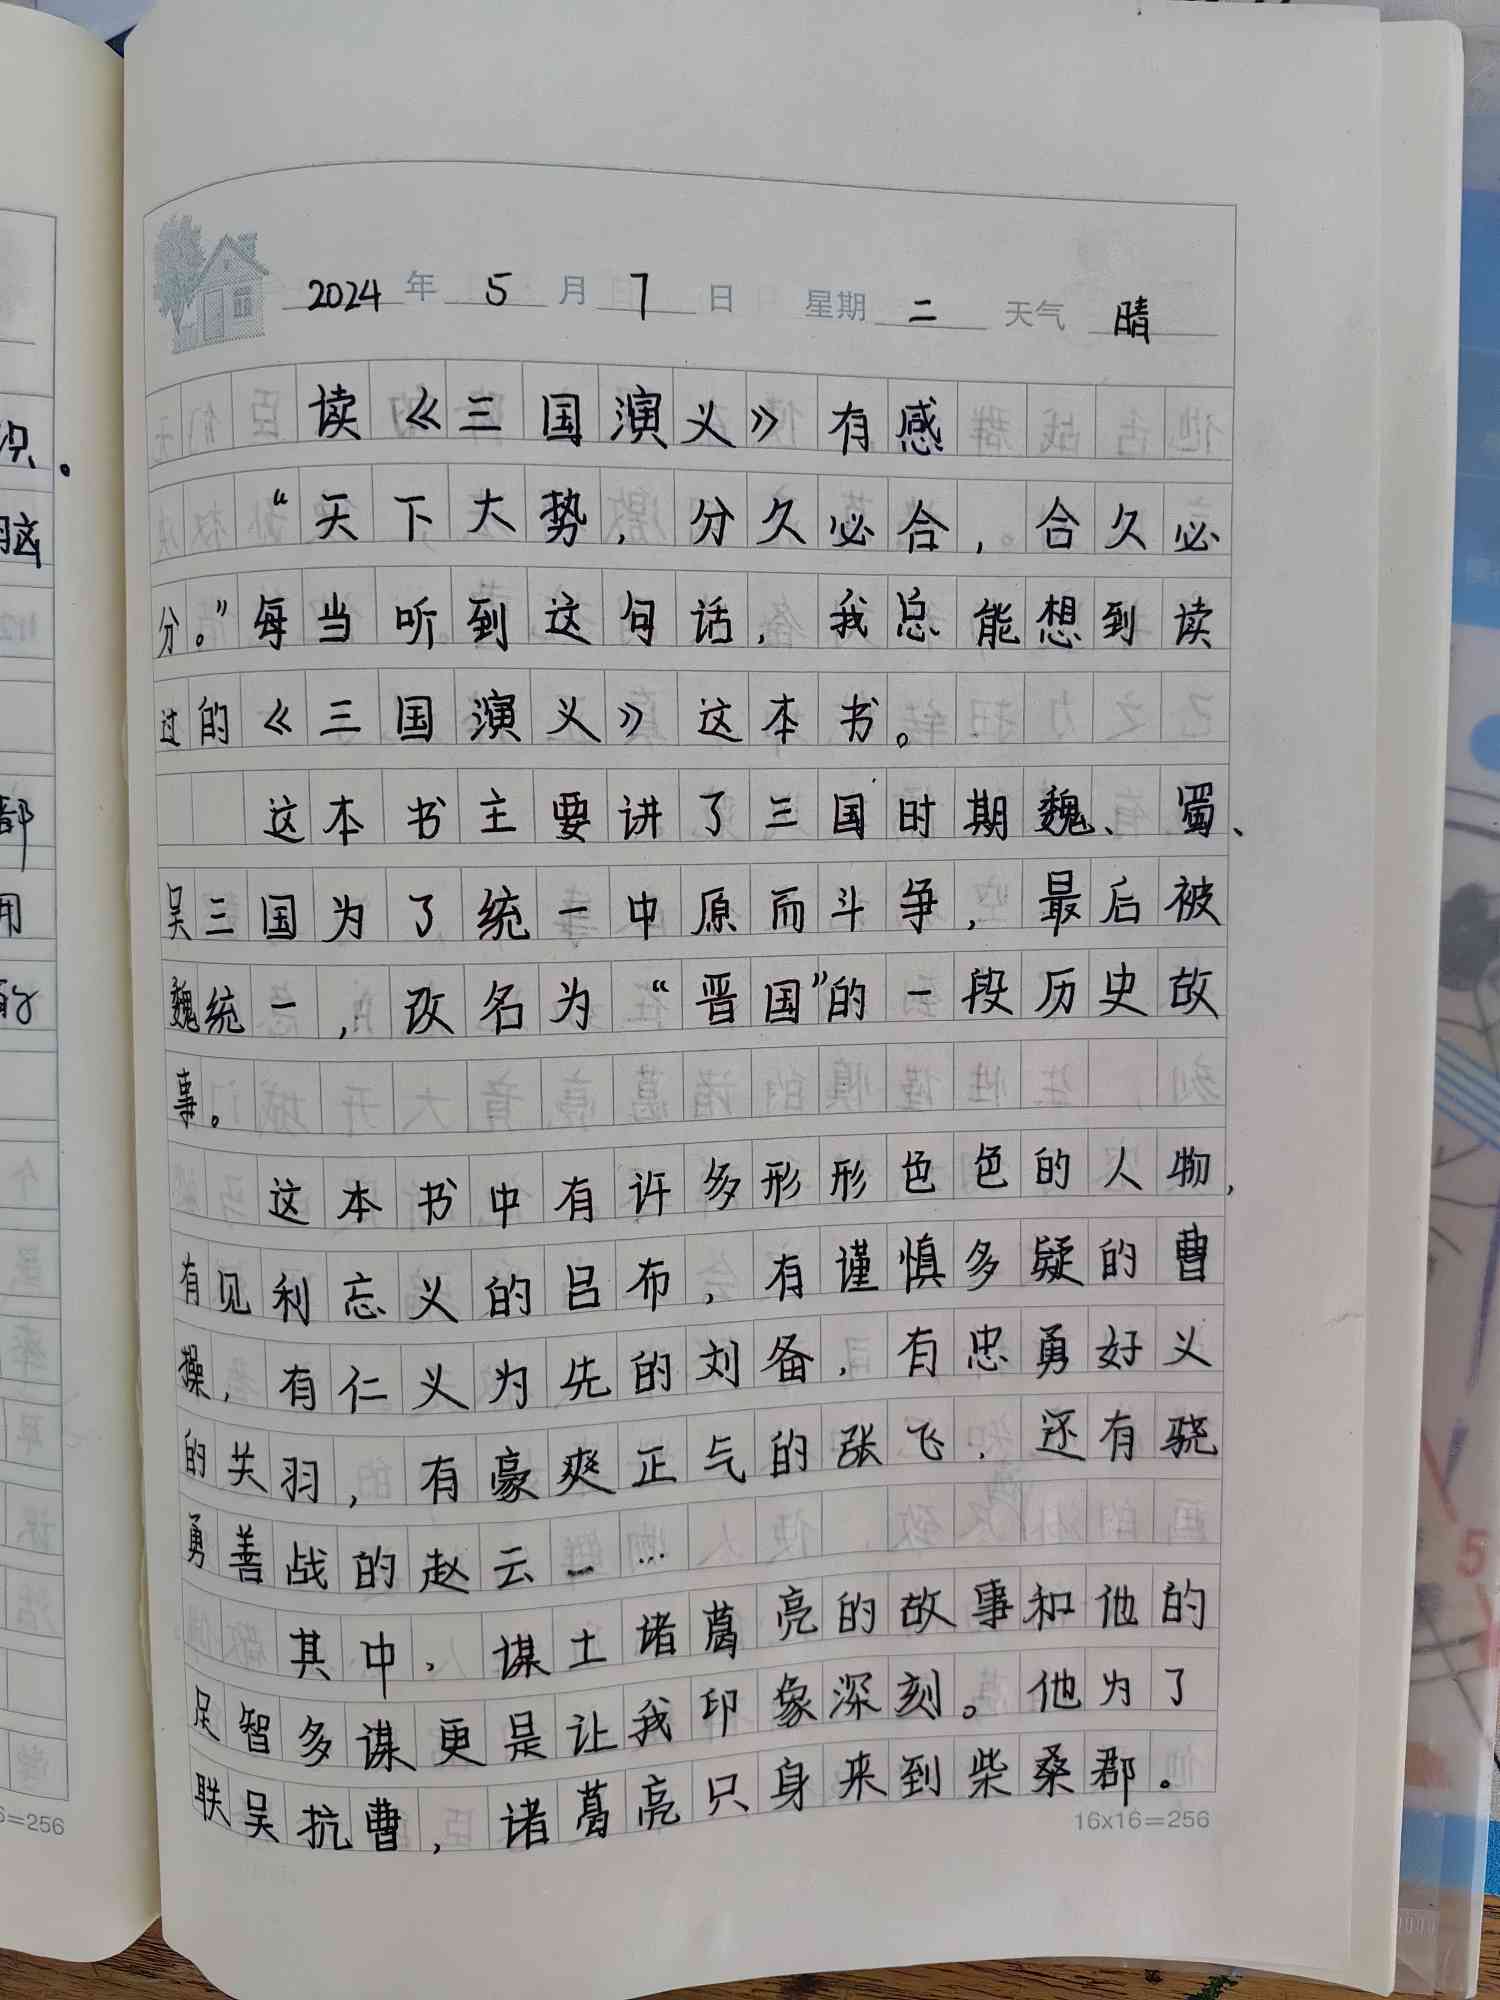 2024年5月7日 星期二 天气晴
读《三国演义》有感
“天下大势，分久必合，合久必
分。”每当听到这句话，我总能想到读
过的《三国演义》这本书。
这本书主要讲了三国时期魏、蜀、
吴三国为了统一中原而斗争，最后被
魏统一，改名为“晋国”的一段历史故
事。
这本书中有许多形形色色的人物，
有见利忘义的吕布，有谨慎多疑的曹
操，有仁义为先的刘备，有忠勇好义
的关羽，有豪爽正气的张飞，还有骁
勇善战的赵云……
其中，谋士诸葛亮的故事和他的
足智多谋更是让我印象深刻。他为了
联吴抗曹，诸葛亮只身来到柴桑郡。
16x16=256
识。
脑
都
用
的
6=256